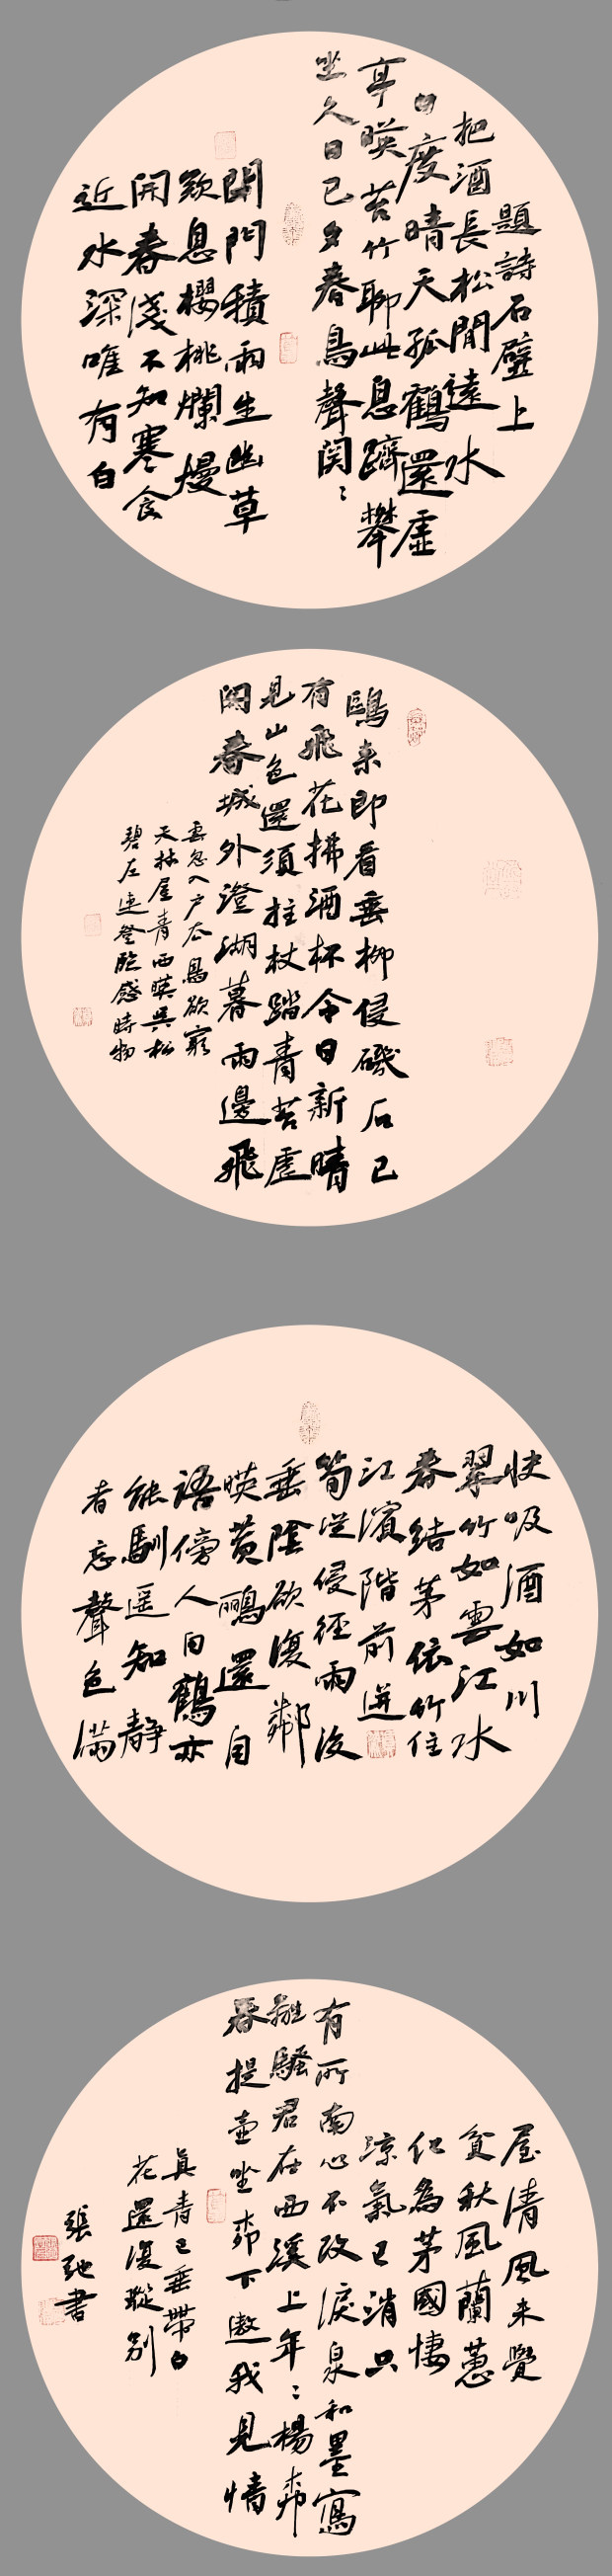 題詩石壁上
把酒長松間遠水
白度晴天孤鶴還虛
亭暎苔竹聊此息躋攀
坐久日已夕春鳥聲関〻
閉門積雨生幽草
歎息櫻桃爛熳
開春淺不知寒食
近水深唯有白
鷗来即看垂柳侵磯石已
有飛花拂酒杯今日新晴
見山色還須拄杖踏青苔虛
閣春城外澄湖暮雨邊飛
雲忽入户去鳥欲窮
天林屋青西暎吳松
碧左連登臨感時物
快吸酒如川
翠竹如雲江水
春結茅依竹住
江濱階前迸
筍從侵徑雨後
垂陰欲復鄰
暎黄鸝還自
語傍人白鶴亦
能馴遥知静
者忘聲色滿
屋清風未覺
貧秋風蘭蕙
化為茅國悽
涼氣已消只
有所南心不改淚泉和墨寫
離騷君在西溪上年〻楊柳
春提壺坐柳下邀我見情
真青已垂帶白
花還復别
張弛書